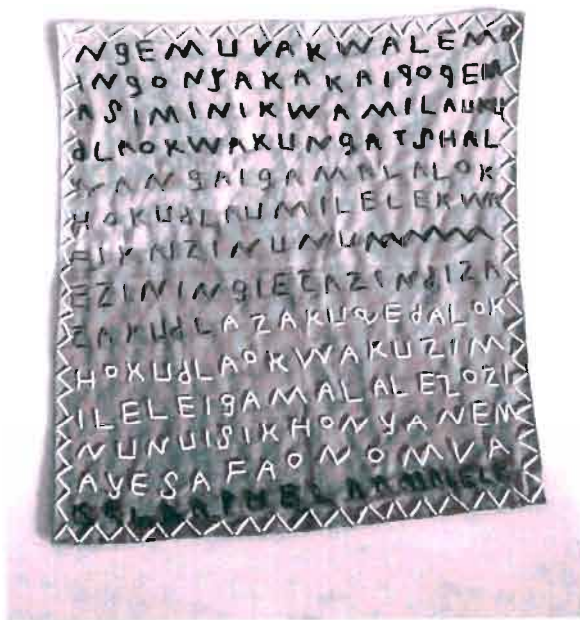 NgEMUVAKWALEMP
INgONyAKAKAI909EM
ASIMINIKWAMILAUKU
dLAOKWAKUNgATSHAL
WANgAIgAMALALOK
HOKUdLAUMILELEKWA
EZININgIEZAZINdIZA
ZAKUdLAZAKUQEdALOK
HOKUdLAOKWAKUZIM
ILELEIgAMALALEZOZI
NUNUISIKHONyANEM
AyESAFAONOMVA